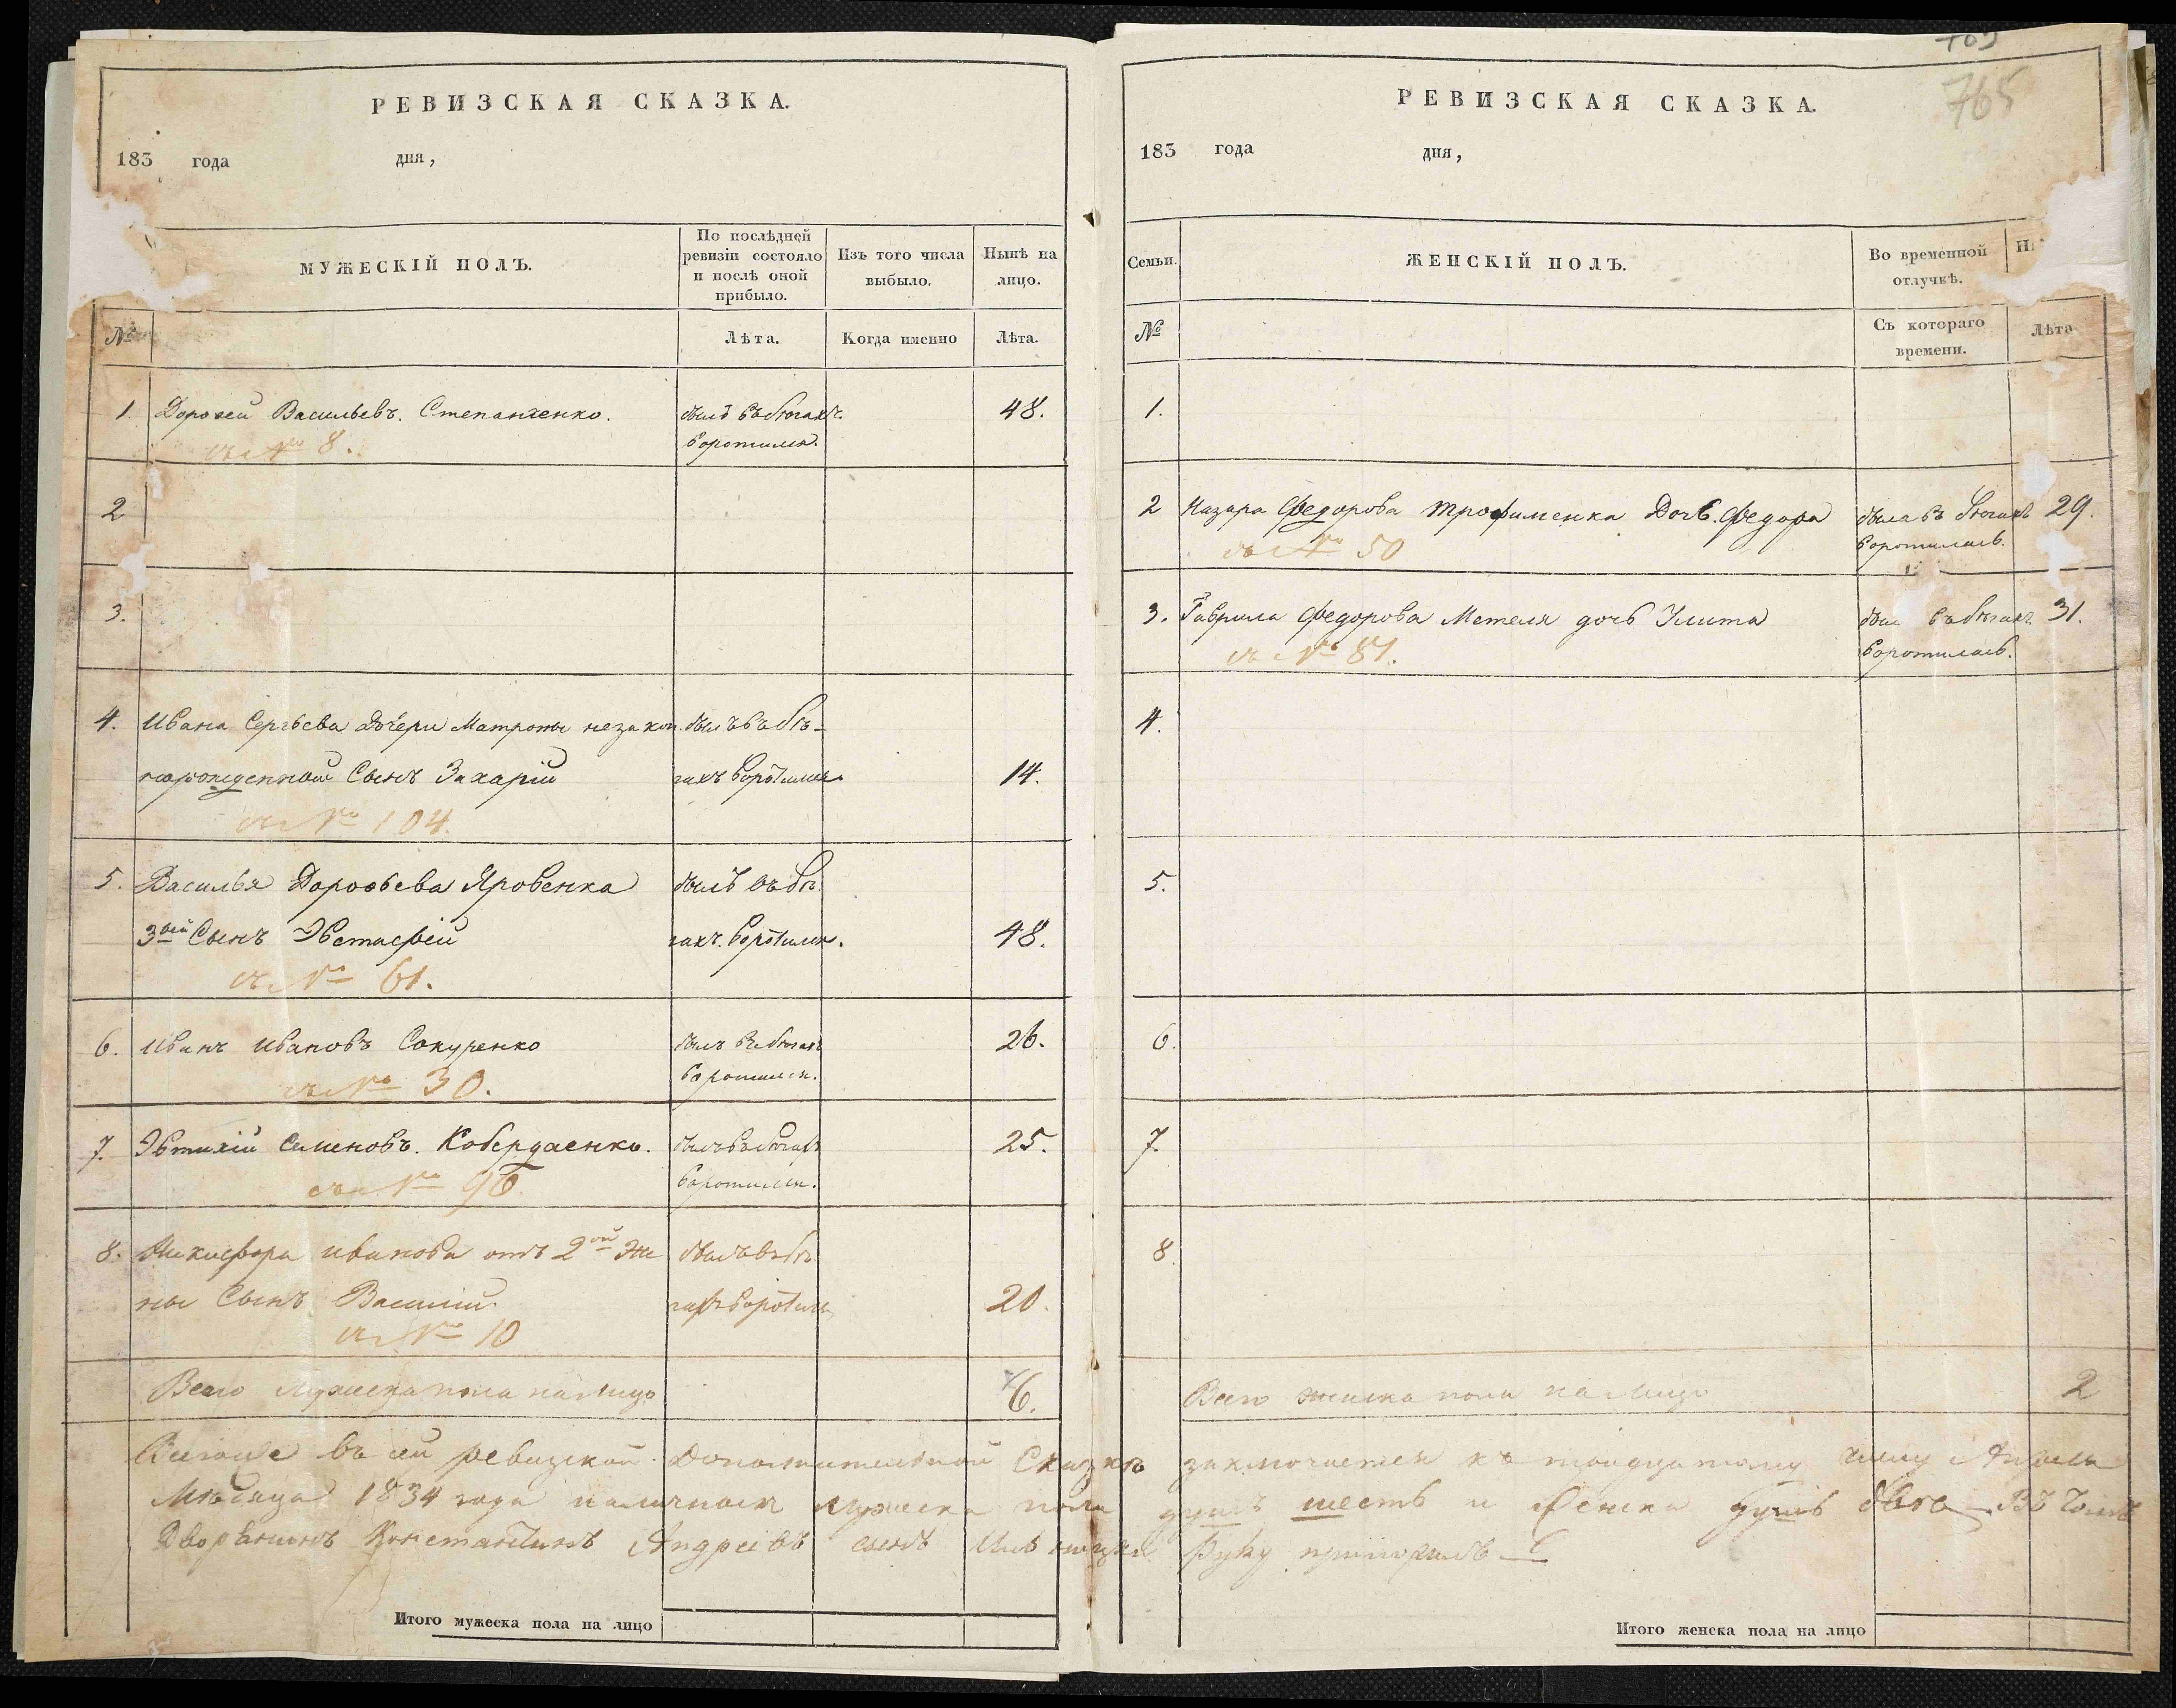 РЕВИЗСКАЯ СКАЗКА.
183 года дня,
МУЖЕСКІЙ ПОЛЪ.
По послѣдней
ревизіи состояло
и послѣ оной
прибыло.
Изъ того числа
выбыло.
Нынѣ на
лицо.
№
Лѣта.
Когда именно
Лѣта.
1. Дорофей Васильевъ. Степаненко. былъ въ бѣгахъ. 48.
воротился.
съ № 8.
2
3.
4. Ивана Сергѣева Дочери Матроны незакон. былъ въ бѣ-
норожденной Сынъ Захарій гахъ воротился 14.
съ № 104.
5. Василья Дорофѣева Яровенка былъ въ бѣ
3ой Сынъ Эвстафей гахъ. воротился. 48.
съ № 61.
6. Иванъ Ивановъ Сокуренко былъ въ бѣгахъ 26.
воротился.
съ № 30.
7. Эвтихій Семеновъ. Кобердаенко. былъ въ бѣгахъ 25.
воротился.
съ № 96.
8. Никифора Иванова отъ 2ой Же былъ въ бѣ
ны Сынъ Василій гахъ воротился 20.
съ № 10
Всего мужеска пола на лицо 6.
РЕВИЗСКАЯ СКАЗКА.
765
183 года дня,
Семьи.
ЖЕНСКІЙ ПОЛЪ.
Во временной
отлучкѣ.
№
Съ котораго
времени.
Лѣта
1.
2 Назара Федорова Трофименка Дочь. Федора была въ бѣгахъ 29.
воротилась.
съ № 50
3. Гаврила Федорова Метеля дочь Улита был въ бѣгахъ 31.
воротилась.
съ № 81.
4.
5.
6.
7.
8.
Всего женска пола на лицо 2
Всего въ сей ревизской Дополнительной Сказкѣ заключается къ тридцатому числу Апреля
Мѣсяца 1834 года наличныхъ мужеска пола душъ шесть и Женска душъ двѣ Въ томъ
Дворянинъ Константинъ Андреевъ сынъ руку приложилъ
Итого мужеска пола на лицо
Итого женска пола на лицо